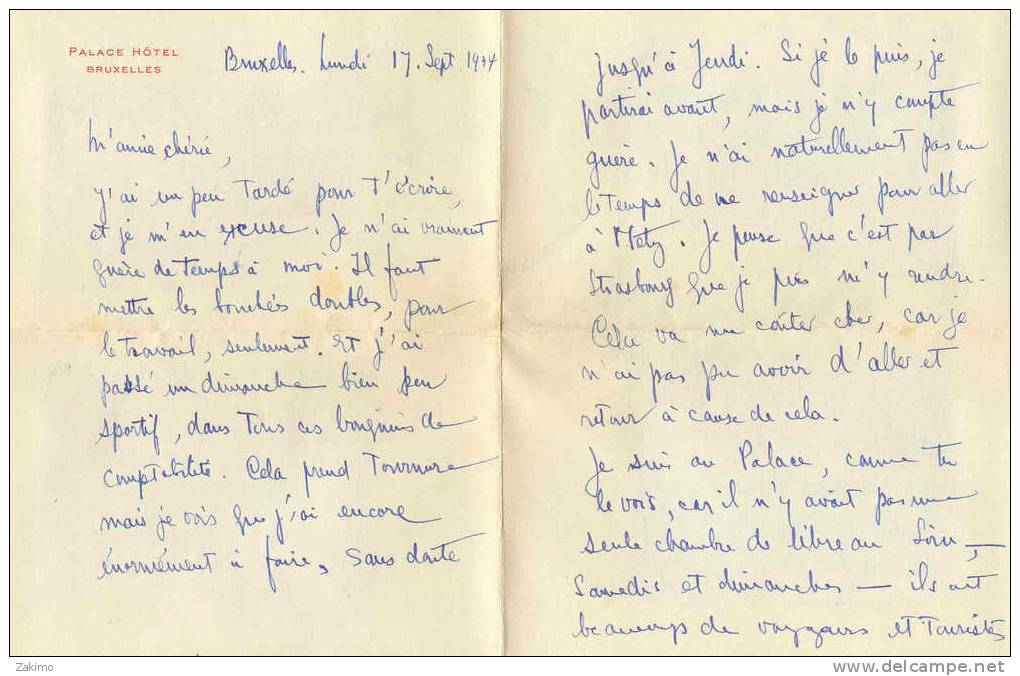 PALACE HÔTEL
BRUXELLES
Bruxelles. Lundi 17. Sept 1934
M'amie chérie,
J'ai un peu tardé pour t'écrire,
et je m'en excuse. Je n'ai vraiment
guère de temps à moi. Il faut
mettre les bouchées doubles, pour
le travail, seulement. Et j'ai
passé un dimanche bien peu
sportif, dans tous ces bouquins de
comptabilité. Cela prend tournure
mais je vois que j'ai encore
énormément à faire, sans doute
jusqu'à Jeudi. Si je le puis, je
partirai avant, mais je n'y compte
guère. Je n'ai naturellement pas eu
le temps de me renseigner pour aller
à Metz. Je pense que c'est par
Strasbourg que je puis m'y rendre.
Cela va me coûter cher, car je
n'ai pas pu avoir d'aller et
retour à cause de cela.
Je suis au Palace, comme tu
le vois, car il n'y avait pas une
seule chambre de libre au
Samedis et dimanches — ils ont
beaucoup de voyageurs et touristes
Zakimo
www.delcampe.net